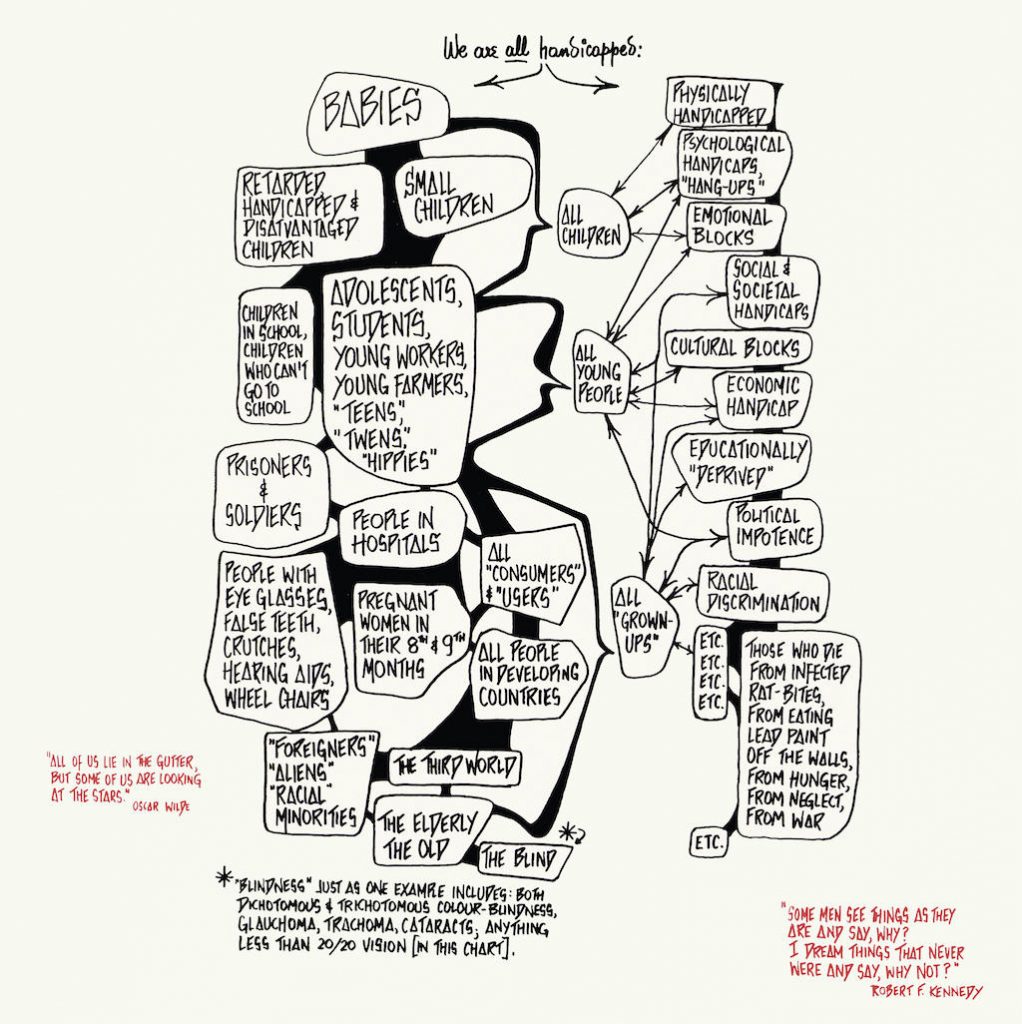 We are all handicapped:
BABIES
RETARDED,
HANDICAPPED &
DISATVANTAGED
CHILDREN
SMALL
CHILDREN
CHILDREN
IN SCHOOL,
CHILDREN
WHO CAN'T
GO TO
SCHOOL
ADOLESCENTS,
STUDENTS,
YOUNG WORKERS,
YOUNG FARMERS,
"TEENS,"
"TWENS,"
"HIPPIES"
PRISONERS
&
SOLDIERS
PEOPLE IN
HOSPITALS
ALL
"CONSUMERS"
& "USERS"
PEOPLE WITH
EYE GLASSES,
FALSE TEETH,
CRUTCHES,
HEARING AIDS,
WHEEL CHAIRS
PREGNANT
WOMEN IN
THEIR 8TH & 9TH
MONTHS
ALL PEOPLE
IN DEVELOPING
COUNTRIES
"FOREIGNERS"
"ALIENS"
"RACIAL"
MINORITIES
THE THIRD WORLD
THE ELDERLY
THE OLD
THE BLIND
*
ALL
CHILDREN
ALL
YOUNG
PEOPLE
ALL
"GROWN-
UPS"
PHYSICALLY
HANDICAPPED
PSYCHOLOGICAL
HANDICAPS,
"HANG-UPS"
EMOTIONAL
BLOCKS
SOCIAL &
SOCIETAL
HANDICAPS
CULTURAL BLOCKS
ECONOMIC
HANDICAP
EDUCATIONALLY
"DEPRIVED"
POLITICAL
IMPOTENCE
RACIAL
DISCRIMINATION
ETC.
ETC.
ETC.
ETC.
THOSE WHO DIE
FROM INFECTED
RAT-BITES,
FROM EATING
LEAD PAINT
OFF THE WALLS,
FROM HUNGER,
FROM NEGLECT,
FROM WAR
ETC.
"ALL OF US LIE IN THE GUTTER,
BUT SOME OF US ARE LOOKING
AT THE STARS."
OSCAR WILDE
* "BLINDNESS" JUST AS ONE EXAMPLE INCLUDES: BOTH
DICHOTOMOUS & TRICHOTOMOUS COLOUR-BLINDNESS,
GLAUCHOMA, TRACHOMA, CATARACTS; ANYTHING
LESS THAN 20/20 VISION [IN THIS CHART].
"SOME MEN SEE THINGS AS THEY
ARE AND SAY, WHY?
I DREAM THINGS THAT NEVER
WERE AND SAY, WHY NOT?"
ROBERT F. KENNEDY